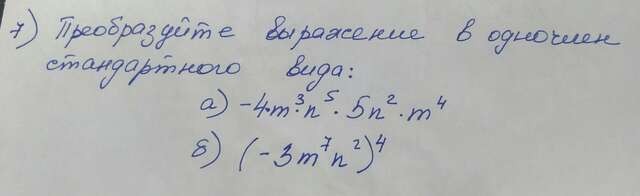 7) Преобразуйте выражение в одночлен
стандартного вида:
а) -4m³n⁵ · 5n² · m⁴
б) (-3m⁷n²)⁴